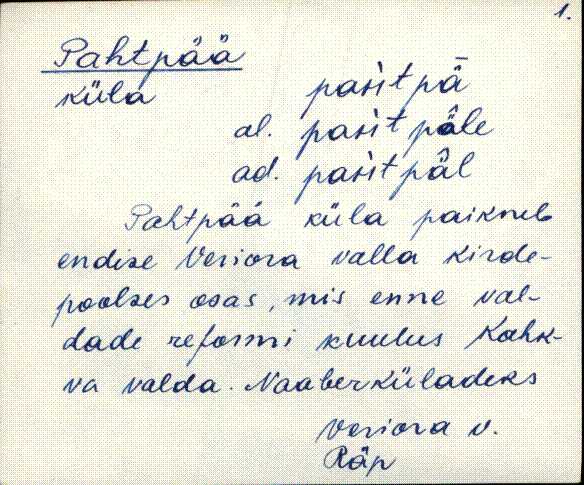 1.
Pahtpää
küla pasìtpǟ
al. pasìt pä̂le
ad. pasìt pä̂l
Pahtpää küla paikneb
endise Veriora valla kirde-
poolses osas, mis enne val-
dade reformi kuulus Kahk-
va valda. Naaberküladeks
Veriora v.
Räp